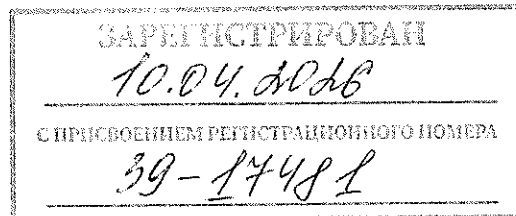 ЗАРЕГИСТРИРОВАН
10.04.2026
С ПРИСВОЕНИЕМ РЕГИСТРАЦИОННОГО НОМЕРА
39-17481